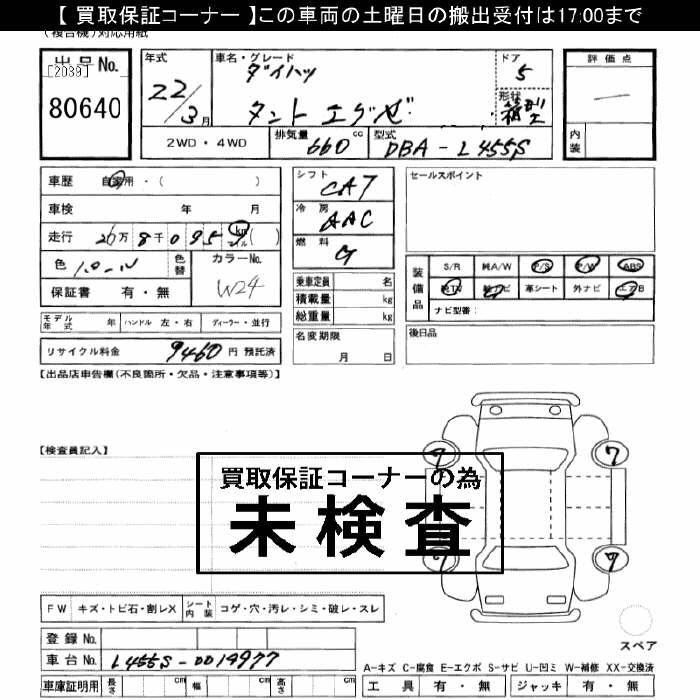 【 買取保証コーナー 】この車両の土曜日の搬出受付は17:00まで
(複合機)対応用紙
出品No.
[2039]
80640
年式
22/3月
車名・グレード
ダイハツ
タント エグゼ
ドア
5
形状
箱型
2WD ・ 4WD
排気量 660 cc
型式 DBA - L455S
評価点
内装
車歴 自家用 ・( )
車検 年 月
走行 26万8千095 km マイル ( )
色 パール
色替
カラーNo.
W24
保証書 有・無
モデル年式 年 ハンドル 左・右 ディーラー・並行
リサイクル料金 9460 円 預託済
シフト
CAT
冷房
AAC
燃料
G
乗車定員 名
積載量 kg
総重量 kg
名変期限
月 日
セールスポイント
装備品
S/R 純A/W P/S P/W ABS
純TV 純ナビ 革シート 外ナビ エアB
ナビ型番:
後日品
【出品店申告欄(不良箇所・欠品・注意事項等)】
【検査員記入】
買取保証コーナーの為
未検査
7
7
7
7
FW キズ・トビ石・割レX シート内装 コゲ・穴・汚レ・シミ・破レ・スレ
登録No.
車台No. L455S-0014977
車庫証明用 長さ cm 幅 cm 高さ cm
スペア
A-キズ C-腐食 E-エクボ S-サビ U-凹ミ W-補修 XX-交換済
工具 有・無 ジャッキ 有・無